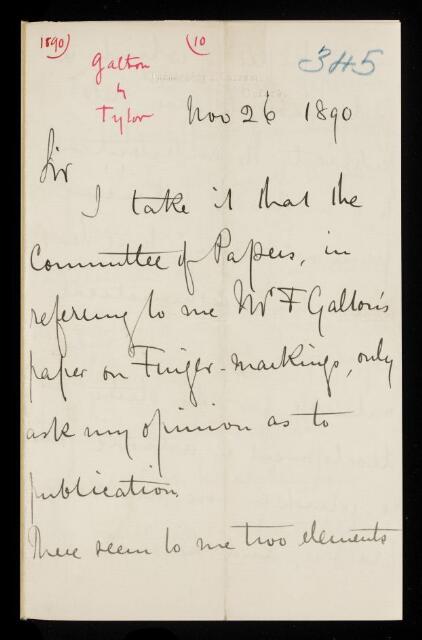 1890) (10 345
Galton
by
Tylor
Nov 26 1890
Sir
I take it that the
Committee of Papers, in
referring to me Mr F Galton's
paper on Finger-markings, only
ask my opinion as to
publication.
There seem to me two elements